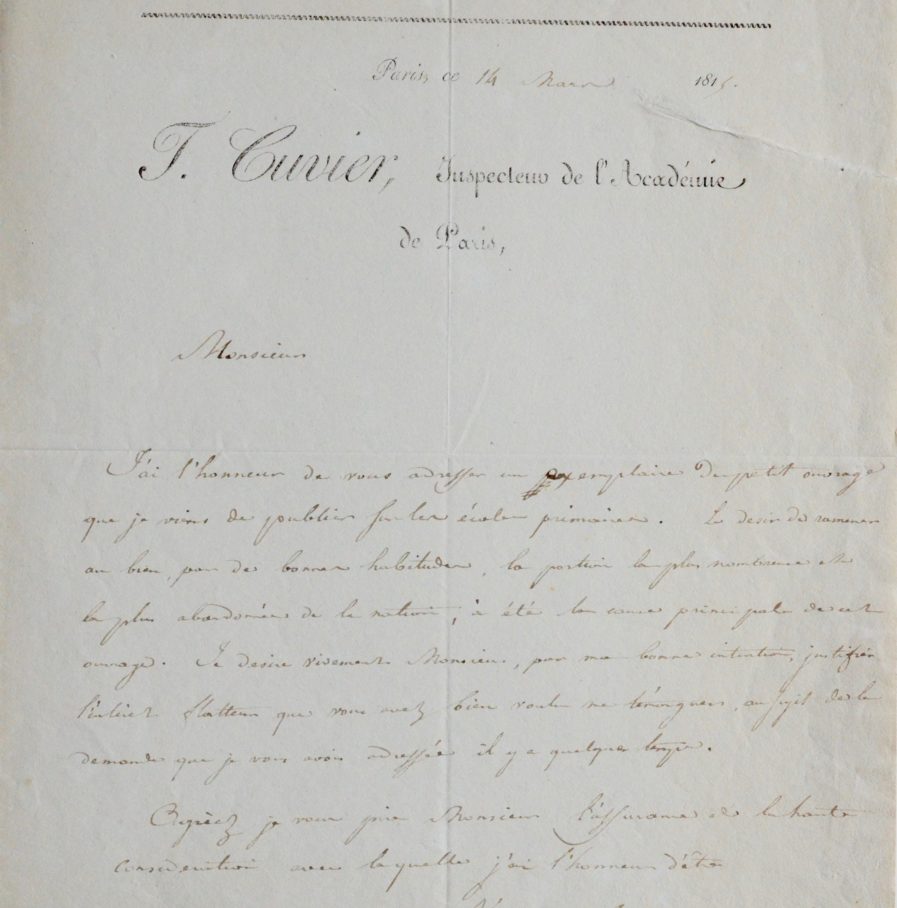 Paris, ce 14 Mars 1815.
F. Cuvier, Inspecteur de l'Académie
de Paris,
Monsieur
J'ai l'honneur de vous adresser un exemplaire du petit ouvrage
que je viens de publier sur les écoles primaires. Le desir de ramener
au bien, par de bonnes habitudes, la portion la plus nombreuse et
la plus abandonnée de la nation, a été la cause principale de cet
ouvrage. Je desire vivement Monsieur, par ma bonne intention, justifier
l'intérêt flatteur que vous avez bien voulu me témoigner, au sujet de la
demande que je vous avois adressée il y a quelque temps.
Agréez je vous prie Monsieur l'assurance de la haute
considération avec laquelle j'ai l'honneur d'être